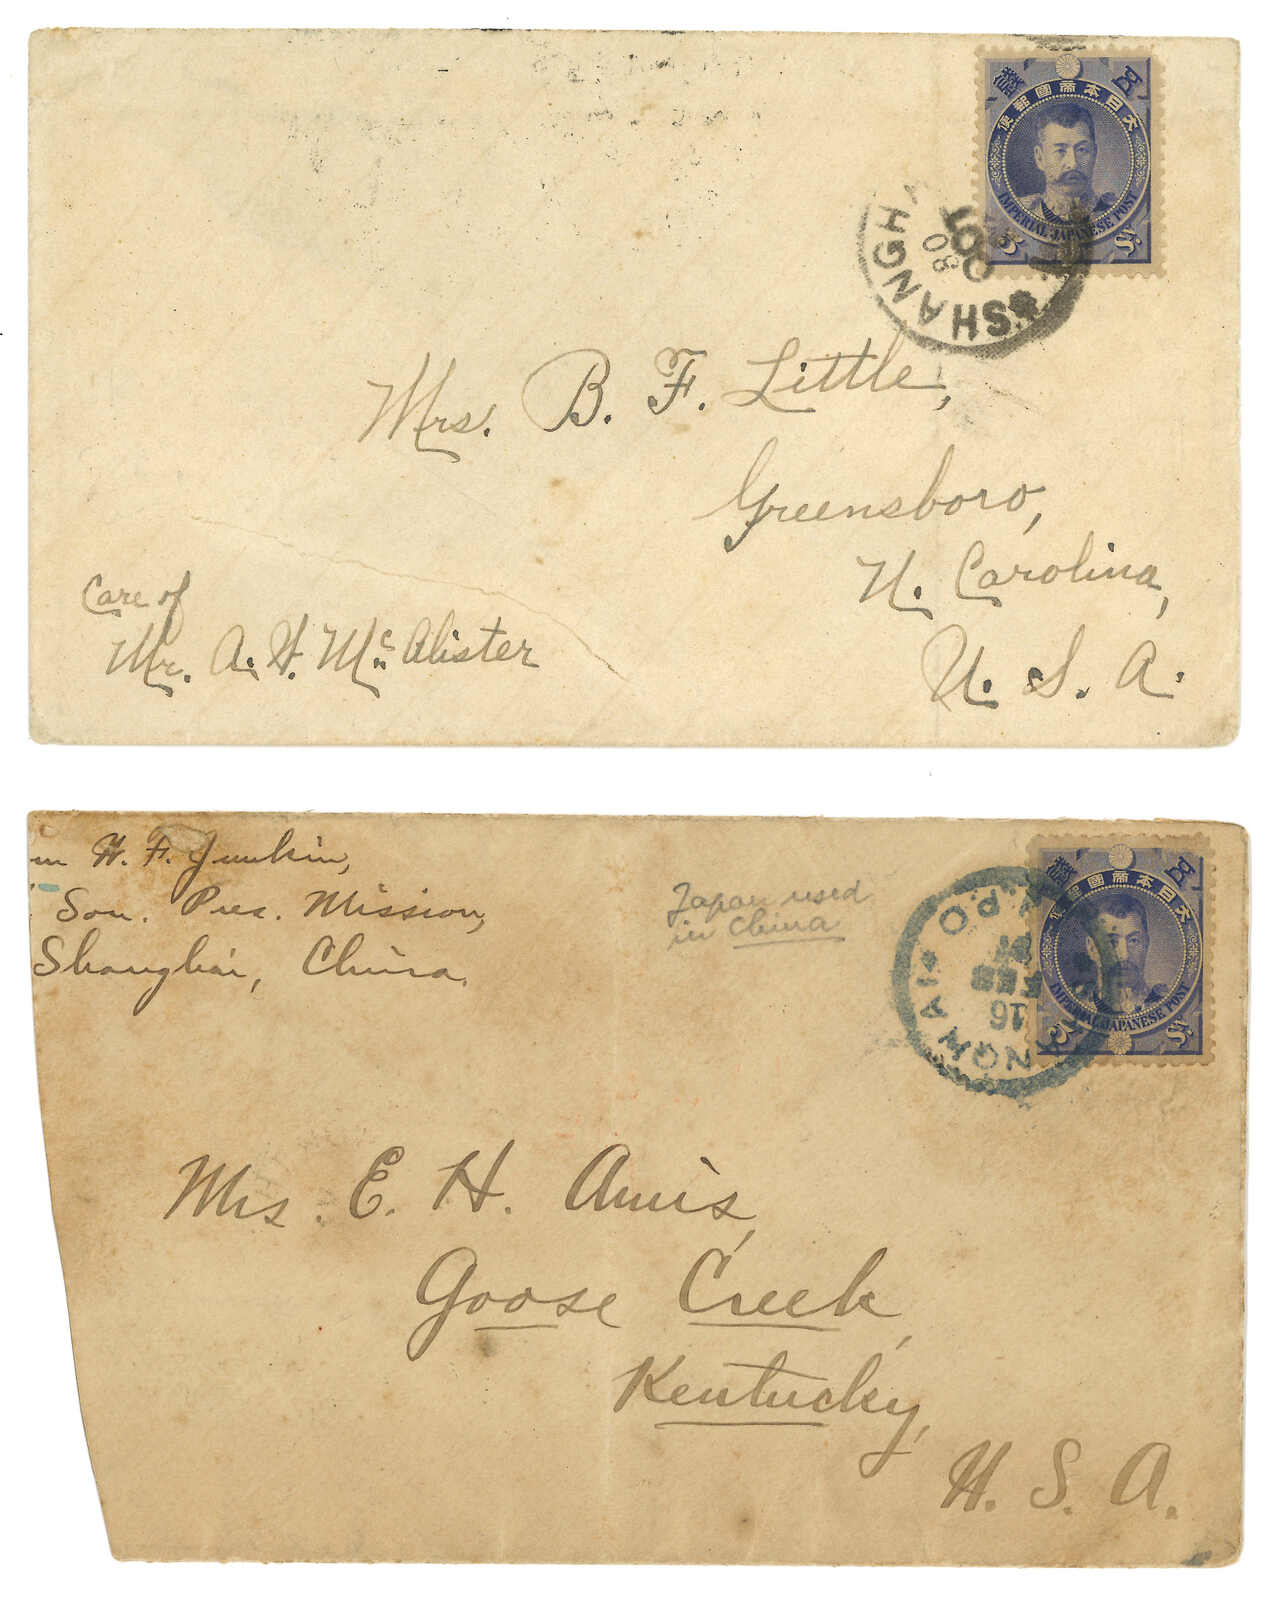 大日本帝國郵便
IMPERIAL JAPANESE POST
5 Sn
SHANGHA
OCT
Mrs. B. F. Little,
Greensboro,
N. Carolina,
U. S. A.
Care of
Mr. A. H. McAlister
H. F. Junkin,
Sou. Pres. Mission,
Shanghai, China.
Japan used
in China
大日本帝國郵便
IMPERIAL JAPANESE POST
5 Sn
16
FEB
97
Mrs. E. H. Amis,
Goose Creek,
Kentucky,
U. S. A.